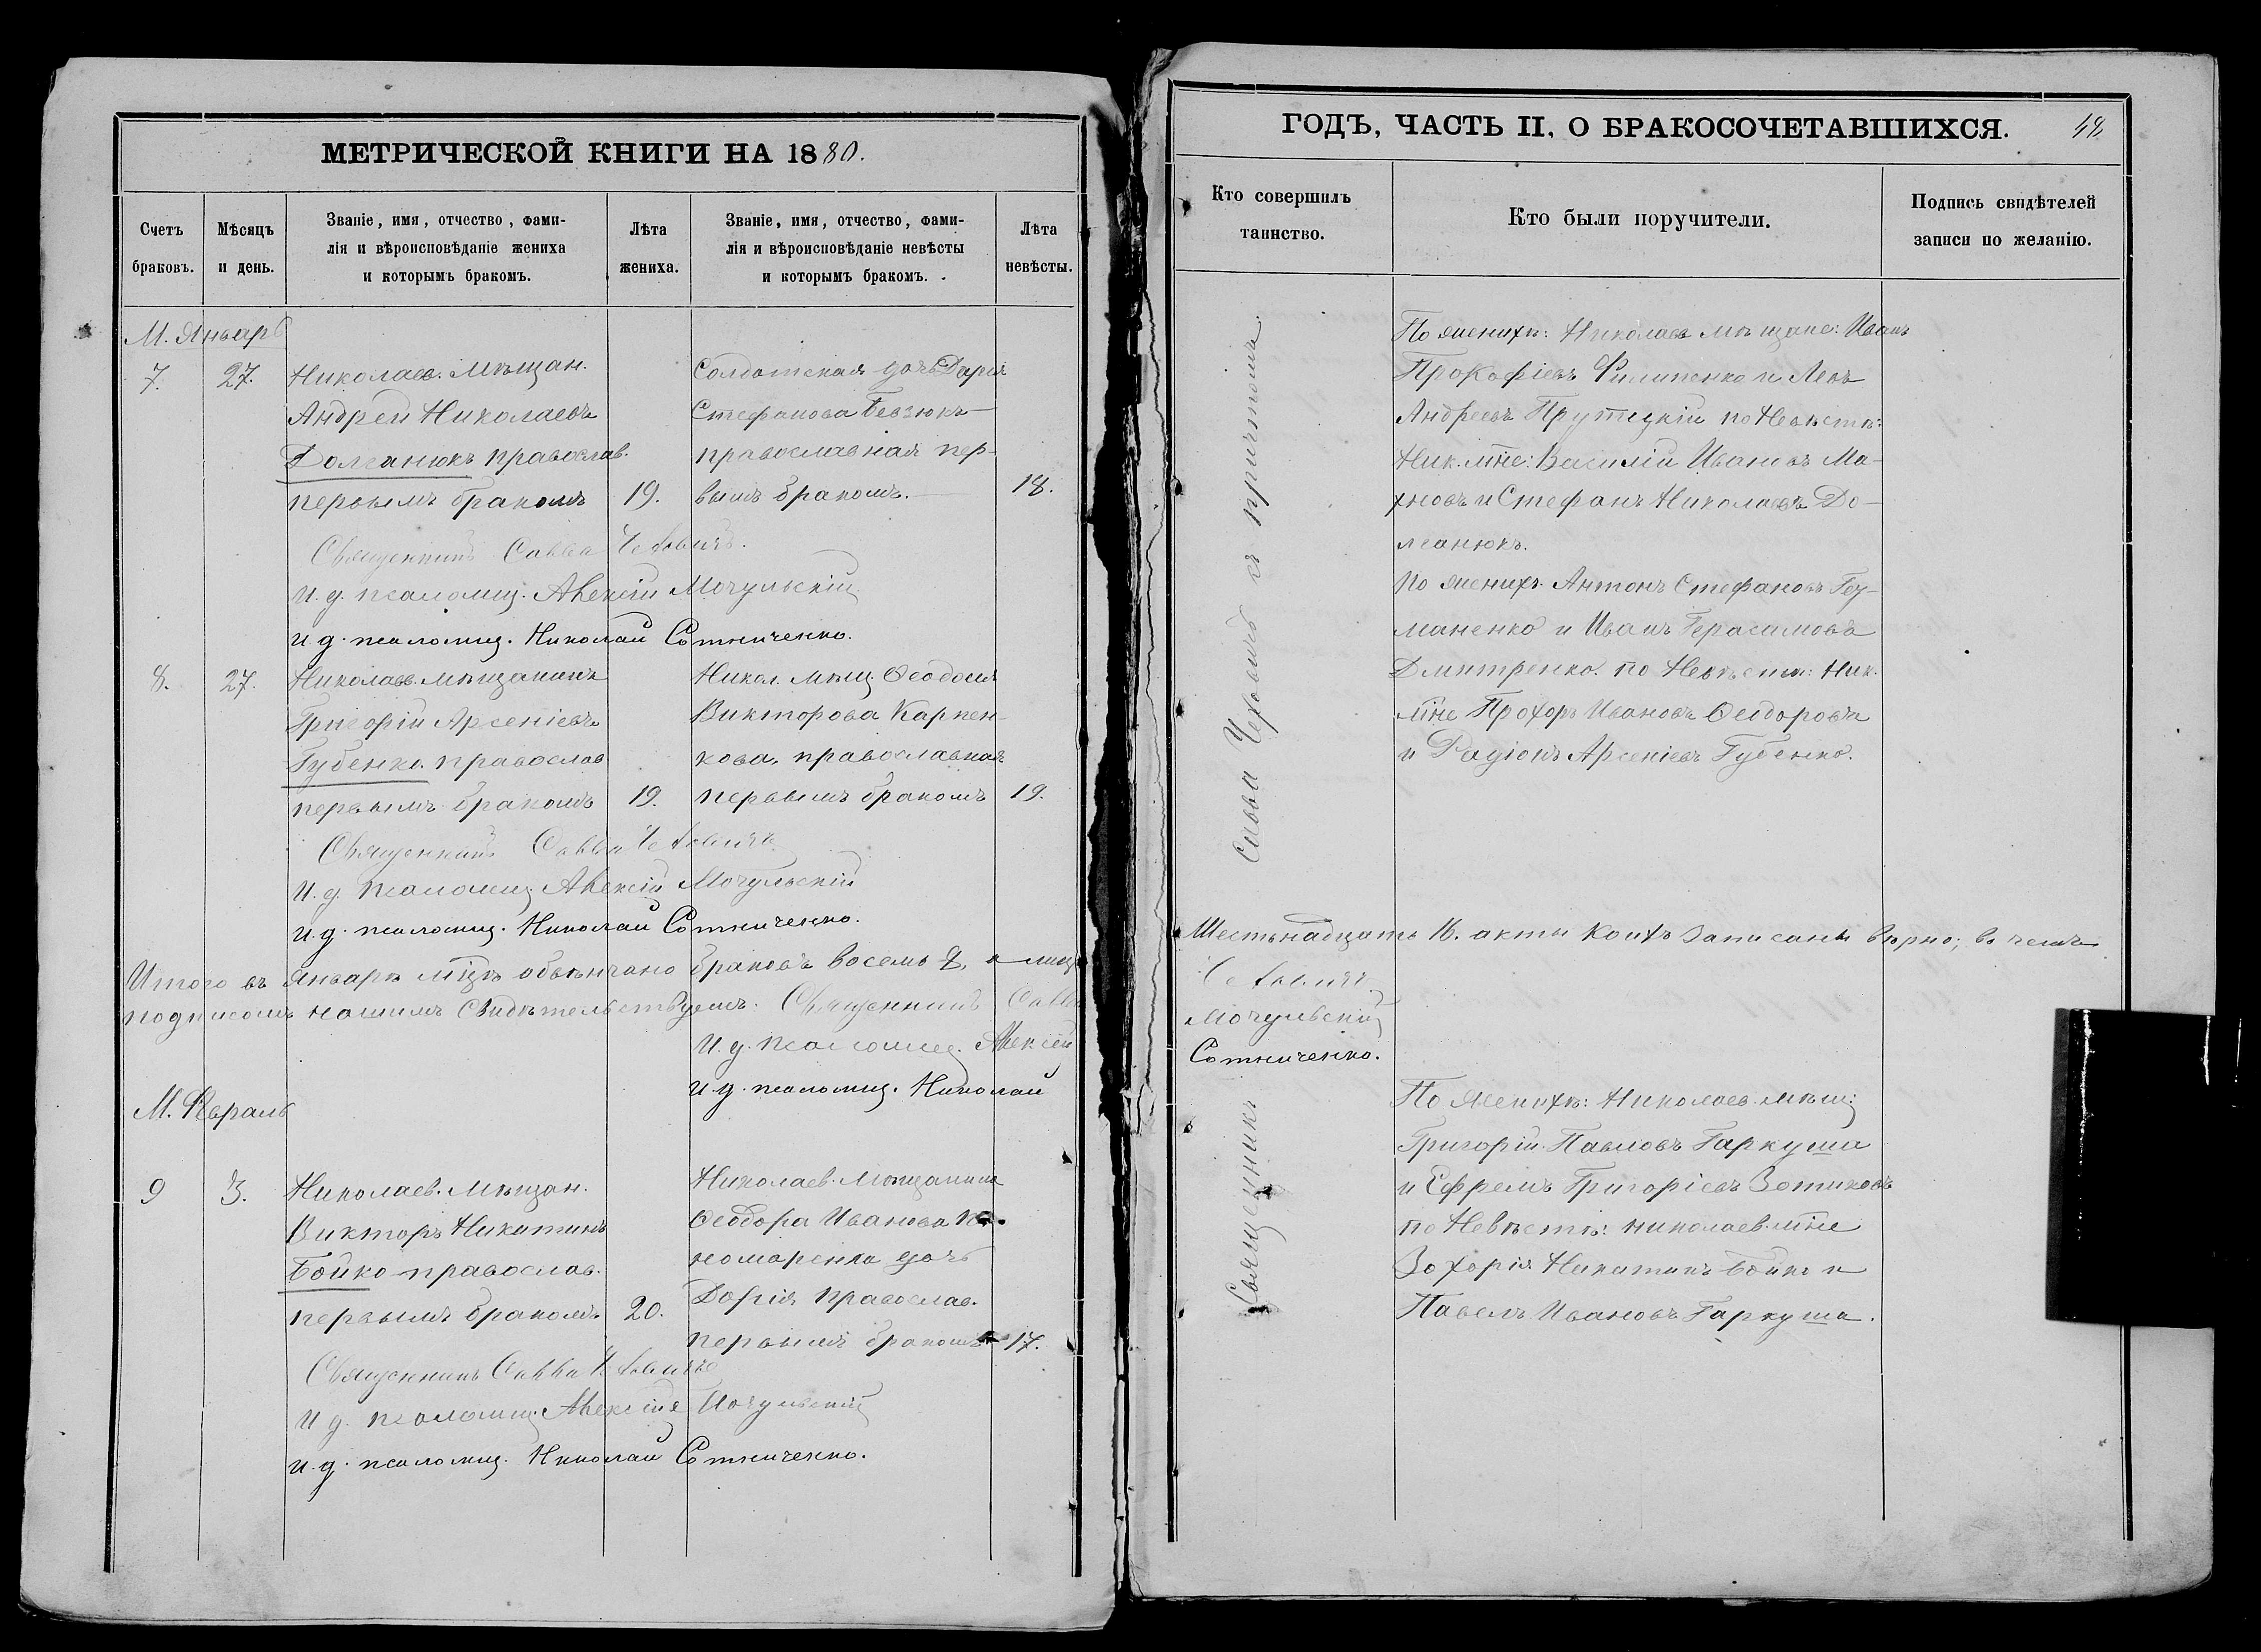 МЕТРИЧЕСКОЙ КНИГИ НА 1880.
Счетъ браковъ.
Мѣсяцъ и день.
Званіе, имя, отчество, фами-
лія и вѣроисповѣданіе жениха
и которымъ бракомъ.
Лѣта жениха.
Званіе, имя, отчество, фами-
лія и вѣроисповѣданіе невѣсты
и которымъ бракомъ.
Лѣта невѣсты.
М. Январь
7. 27. Николаев. мѣщан.
Андрей Николаевъ
Долганюкъ православ.
первымъ бракомъ 19.
Солдатская дочь Дарія
Стефанова Безюкъ
православная пер-
вымъ бракомъ. 18.
Священникъ Савва
И. д. псаломщ. Алексій Мочульскій
И д. псаломщ. Николай Сотниченко.
8. 27. Николаев. мѣщанинъ
Григорій Арсеніевъ
Губенко православ
первымъ бракомъ 19.
Никол. мѣщ. Ѳеодосія
Викторова Карпен-
кова, православная
первымъ бракомъ 19.
Священникъ Савва
И. д. псаломщ Алексій Мочульскій
И. д. псаломщ. Николай Сотниченко.
Итого въ Январѣ мцѣ обвѣнчано браковъ восемь 8, а лицъ
подписомъ нашимъ свидѣтельствуемъ. Священникъ Савва
И. д. псаломщ. Алексій
И. д. псаломщ. Николай
М. Февраль
9 3. Николаев. мѣщан.
Викторъ Никитинъ
Бойко православ.
первымъ бракомъ 20.
Николаев. мѣщанина
Ѳеодора Иванова По-
номаренка дочь
Дарія православ.
первымъ бракомъ 17.
Священникъ Савва
И д. псаломщ. Алексій Мочульскій
И. д. псаломщ. Николай Сотниченко.
ГОДЪ, ЧАСТЬ II, О БРАКОСОЧЕТАВШИХСЯ.
Кто совершилъ таинство.
Кто были поручители.
Подпись свидѣтелей записи по желанію.
Священникъ Савва съ причтомъ.
По женихѣ: Николаев мѣщане: Иванъ
Прокофіевъ Филипенко и Левъ
Андреевъ Прутецкій по Невѣстѣ:
Ник. мѣне: Василій Ивановъ Ма-
хновъ и Стефанъ Николаевъ До-
лганюкъ.
По женихѣ Антонъ Стефановъ
маненко и Иванъ Герасимовъ
Дмитренко. по Невѣстѣ: Ник.
мѣне Прохоръ Ивановъ Ѳеодоровъ
и Радіонъ Арсеніевъ Губенко.
Шестьнадцать 16. акты коихъ записаны вѣрно; въ чемъ
Мочульскій
Сотниченко.
По женихѣ: Николаев. мѣщ:
Григорій Павловъ Гаркуша
и Ефремъ Григоріевъ Зотиковъ
по Невѣстѣ: николаев. мѣне
Захарія Никитинъ Бойко и
Павелъ Ивановъ Гаркуша.